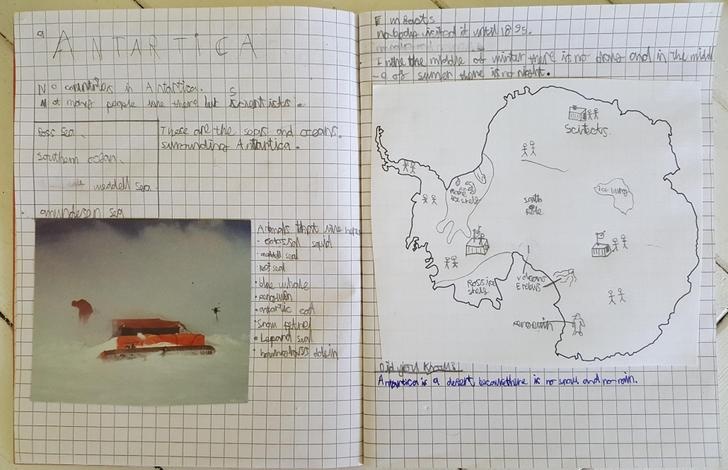 ANTARTICA
No countries in Antartica.
Not many people live there but Scientists.
Ross Sea
Southern ocean
weddell sea
These are the seas and oceans
surrounding Antartica.
amundsen sea
Animals that live here
• colossal squid
• weddell seal
• seal
• blue whale
• penguin
• antartic cod
• snow petrel
• Lepard seal
nobody visited it until 1895.
in the middle of winter there is no and in the midd
-e of sumer there is no night.
Scitists
south
pole
ice shelf
Ross ice
shelf
volcano
Erebus
penguin
Did you know
Antartica is a desert because there is no snow and no rain.